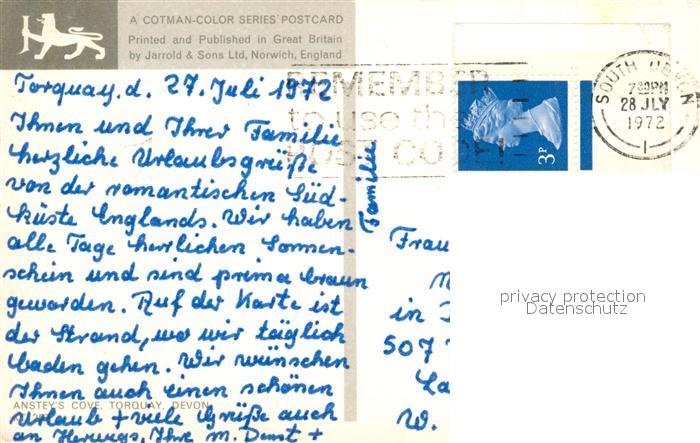 A COTMAN-COLOR SERIES POSTCARD
Printed and Published in Great Britain
by Jarrold & Sons Ltd, Norwich, England
REMEMBER
to use the
POST CODE!
3P
SOUTH DEVON
7 30PM
28 JLY
1972
Torquay. d. 27. Juli 1972
Ihnen und Ihrer Familie
herzliche Urlaubsgrüße
von der romantischen Süd-
küste Englands. Wir haben
alle Tage herrlichen Sonnen-
schein und sind prima braun
geworden. Auf der Karte ist
der Strand, wo wir täglich
baden gehen. Wir wünschen
Ihnen auch einen schönen
Urlaub + viele Grüße auch
an Ihre M.
Familie
Frau
in
507
W.
ANSTEY'S COVE, TORQUAY, DEVON
privacy protection
Datenschutz